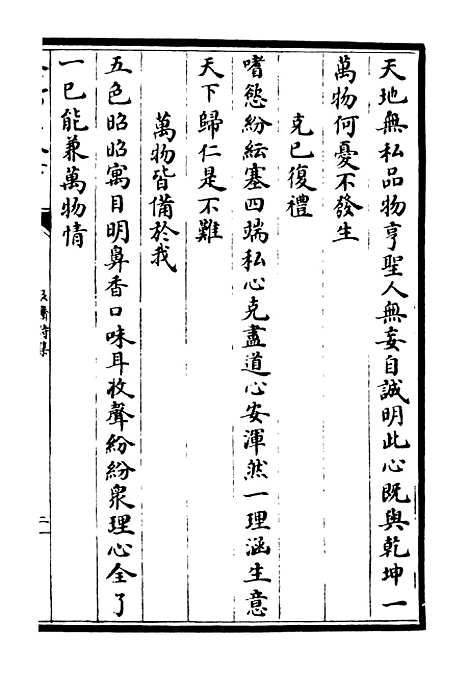 天地無私品物亨聖人無妄自誠明此心既與乾坤一
萬物何憂不發生
克己復禮
嗜慾紛紜塞四端私心克盡道心安渾然一理涵生意
天下歸仁是不難
萬物皆備於我
五色昭昭寓目明鼻香口味耳收聲紛紛衆理心全了
一己能兼萬物情
二